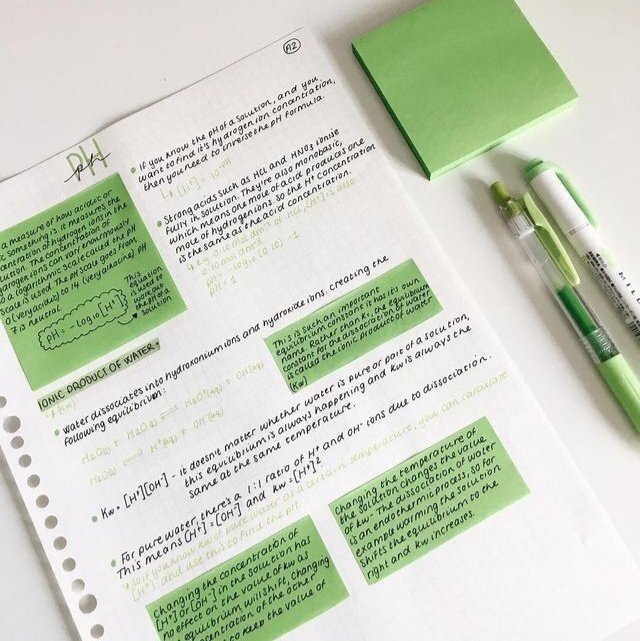 A2
pH
ph
a measure of how acidic or
ic something is. It measures the
centration of hydrogen ions in the
olution. The concentration of
hydrogen ions can vary enormously
so a logarithmic scale called the pH
scale is used. The pH scale goes from
0 (very acidic) to 14 (very alkaline). pH
7 is neutral.
pH = -log10[H+]
This
equation
is used to
work out
the pH of a
solution
• If you know the pH of a solution, and you
want to find it's hydrogen ion concentration,
then you need to inverse the pH formula.
↳ [H+] = 10-pH
• Strong acids such as HCl and HNO3 ionise
fully in solution. They're also monobasic,
which means one mole of acid produces one
mole of hydrogen ions. So the H+ concentration
is the same as the acid concentration.
↳ e.g. 0.10 mol dm-3 of HCl, [H+] is also
0.10 mol dm-3
pH = -log10 (0.10) = 1
pH = 1
IONIC PRODUCT OF WATER.
↳ (Kw)
• water dissociates into hydroxonium ions and hydroxide ions. creating the
following equilibrium:
H2O(l) + H2O(l) ⇌ H3O+(aq) + OH-(aq)
H2O(l) ⇌ H+(aq) + OH-(aq)
This is such an important
equilibrium constant it has it's own
name. Rather than Kc, the equilibrium
constant for the dissociation of water
is called the ionic product of water
(Kw)
• Kw = [H+][OH-] - it doesn't matter whether water is pure or part of a solution,
this equilibrium is always happening and Kw is always the
same at the same temperature.
• For pure water, there's a 1:1 ratio of H+ and OH- ions due to dissociation.
This means [H+] = [OH-] and Kw = [H+]2
↳ so if you know Kw of pure water at a certain temperature, you can calculate
[H+] and use this to find the pH.
Changing the concentration of
[H+] or [OH-] in the solution has
no effect on the value of Kw as
equilibrium will shift, changing
concentration of the other
to keep the value of
Changing the temperature of
the solution changes the value
of Kw. The dissociation of water
is an endothermic process, so for
example warming the solution
shifts the equilibrium to the
right and Kw increases.